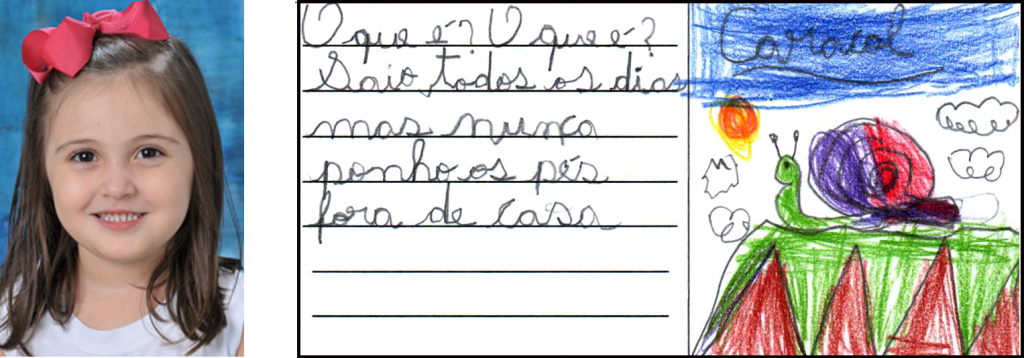 O que é? O que é?
Saio todos os dias
mas nunca
ponho os pés
fora de casa
Caracol